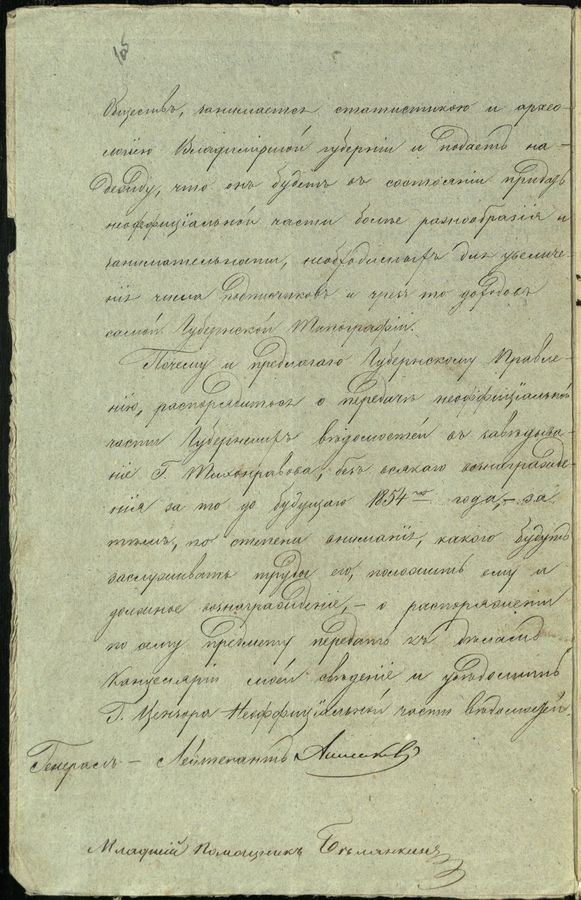 Обществъ, занимается статистикою и архео-
логіею Владимірской губерніи и подаетъ на-
дежду, что онъ будетъ въ состояніи придать
неоффиціальной части болѣе разнообразія и
занимательности, необходимыхъ для увеличе-
нія числа подписчиковъ и чрезъ то доходовъ
самой Губернской Типографіи.
Почему и предлагаю Губернскому Правле-
нію, распорядиться о передачѣ неоффиціальной
части Губернскихъ вѣдомостей въ завѣдыва-
ніе Г. Тихонравова, безъ всякаго вознагражде-
нія за то до будущаго 1854го года, – за
тѣмъ, по степени вниманія, какого будутъ
заслуживать труды его, положить ему и
должное вознагражденіе, – о распоряженіи
по сему предмету передать къ дѣламъ
Канцеляріи моей свѣденіе и увѣдомить
Г. Цензора Неоффиціальной части вѣдомостей.
Генералъ – Лейтенантъ
Младшій Помощникъ Бѣлянкинъ